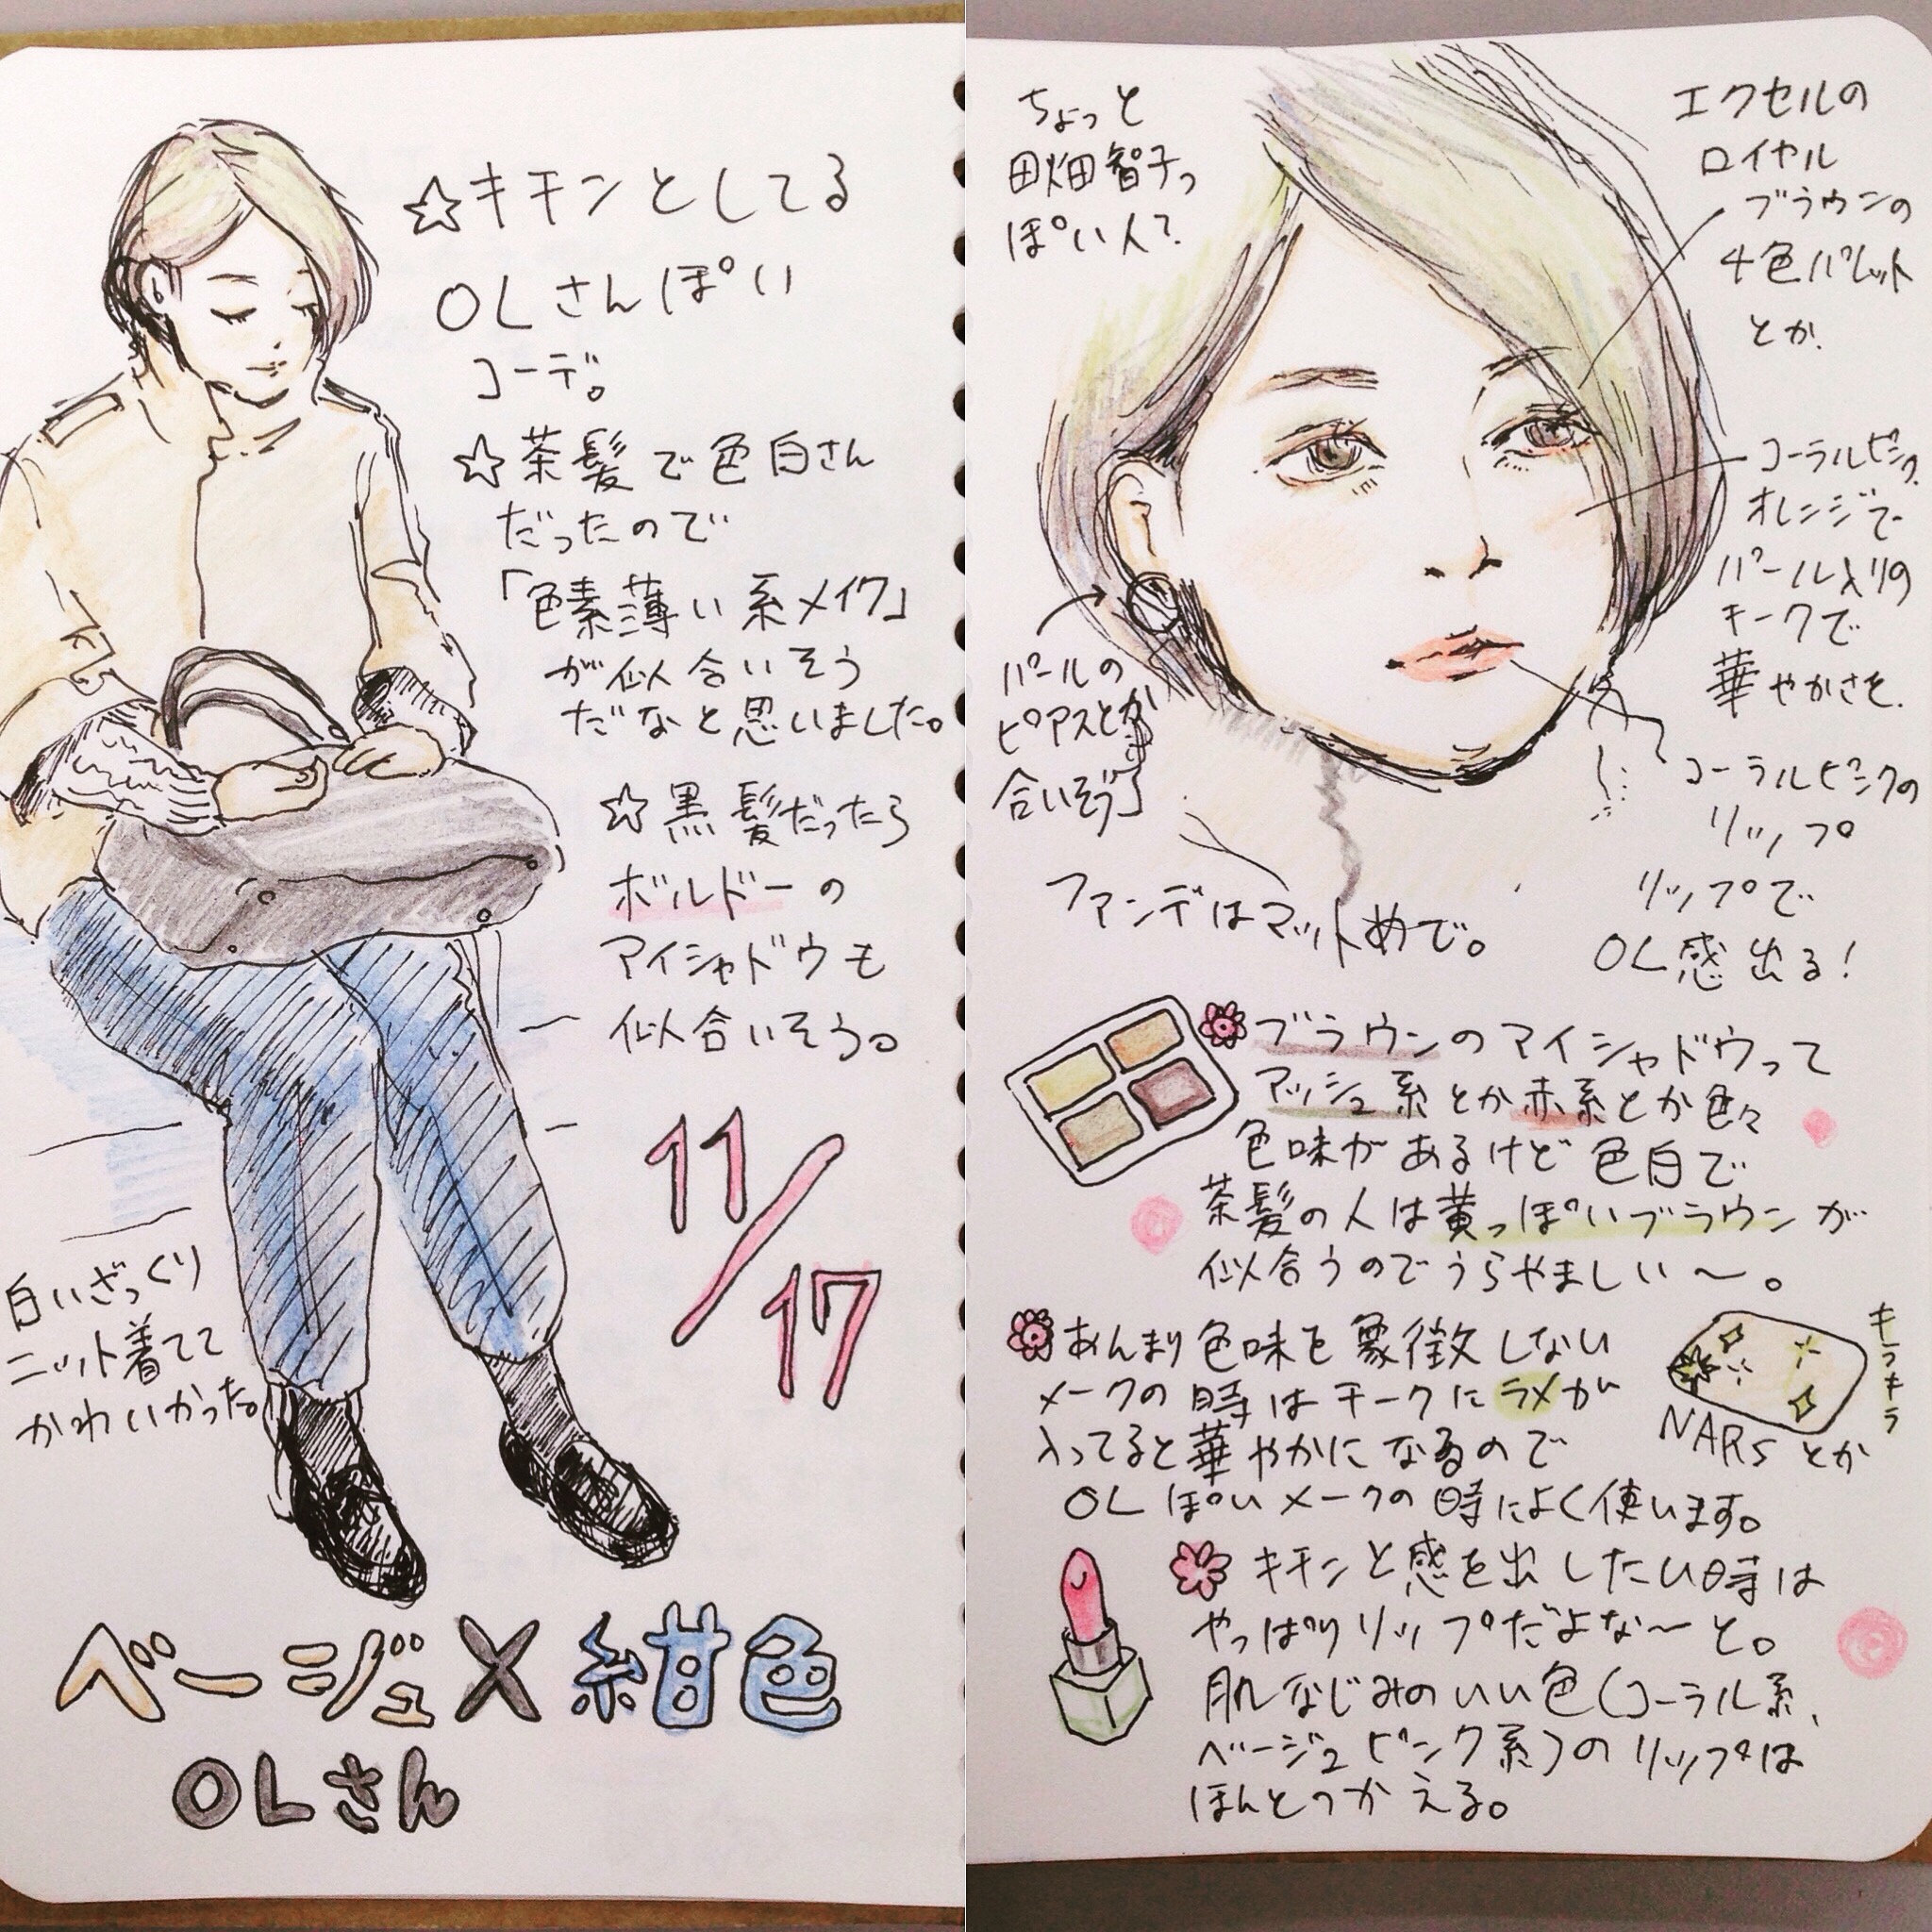 ☆キチンとしてる
OLさんぽい
コーデ。
☆茶髪で色白さん
だったので
「色素薄い系メイク」
が似合いそう
だなと思いました。
☆黒髪だったら
ボルドーの
アイシャドウも
似合いそう。
11/17
白いざっくり
ニット着てて
かわいかった。
ベージュ×紺色
OLさん
ちょっと
田畑智子っ
ぽい人で
エクセルの
ロイヤル
ブラウンの
4色パレット
とか。
コーラルピンク、
オレンジで
パール入りの
チークで
華やかさを。
パールの
ピアスとか
合いそう
コーラルピンクの
リップ
リップで
OL感出る!
ファンデはマットめで。
ブラウンのアイシャドウって
アッシュ系とか赤系とか色々
色味があるけど色白で
茶髪の人は黄っぽいブラウンが
似合うのでうらやましい〜。
あんまり色味を象徴しない
メークの時はチークにラメが
入ってると華やかになるので
OLぽいメークの時によく使います。
キラキラ
NARSとか
キチンと感を出したい時は
やっぱりリップだよな〜と。
肌なじみのいい色(コーラル系、
ベージュピンク系)のリップは
ほんとつかえる。